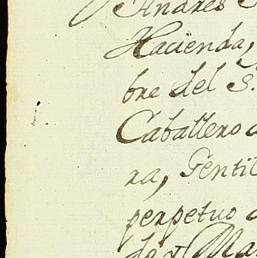 Andres
Hacienda,
bre del S.
Caballero
ra, Gentil
perpetuo
do y Ma